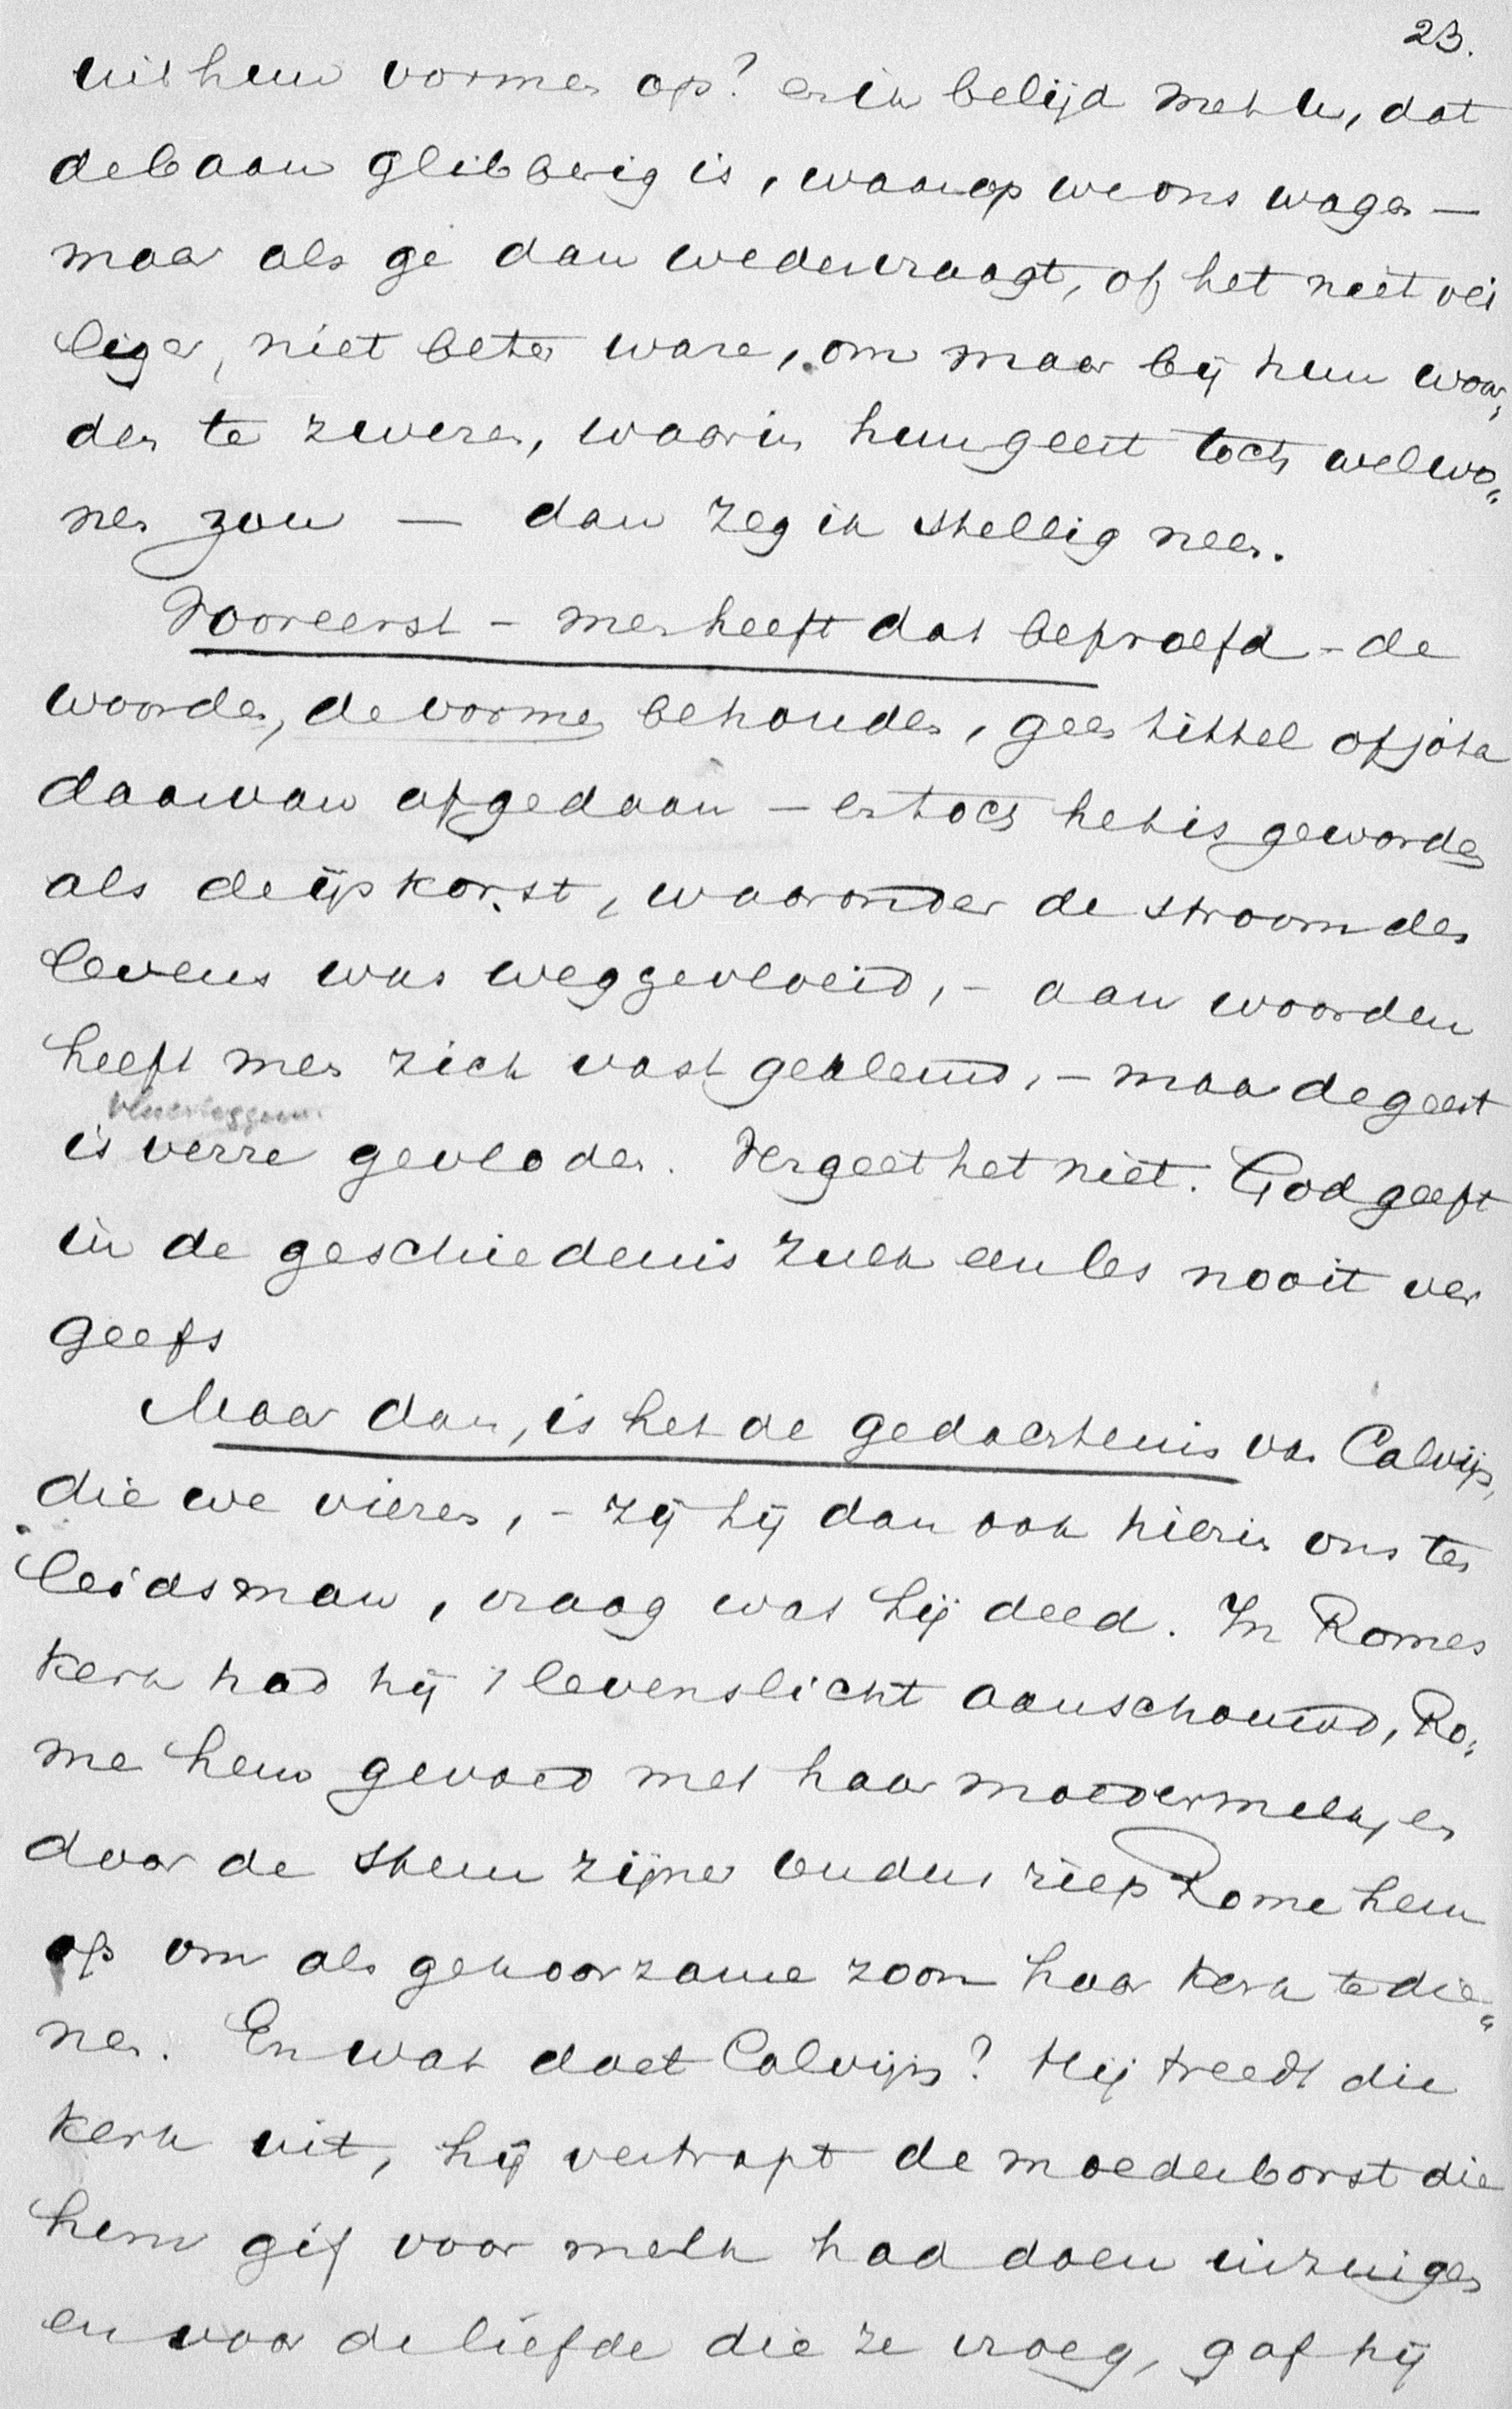 23.
uit hun vormen op? en ik belijd met u, dat
de baan glibberig is, waarop we ons wagen —
maar als ge dan wedervraagt, of het niet vei
liger, niet beter ware, om maar bij hun woor„
den te zweren, waarin hun geest toch wel wo„
nen zou — dan zeg ik stellig neen.
Vooreerst - men heeft dat beproefd - de
woorden, de vormen behouden, geen tittel of jota
daarvan afgedaan — en toch het is geworden
als de ijskorst, waaronder de stroom des
levens was weggevloeid, - aan woorden
heeft men zich vast geklemd, - maar de geest
is verre gevloden. Vergeet het niet. God geeft
in de geschiedenis zulk een les nooit ver
geefs
Maar dan, is het de gedachtenis van Calvijn,
die we vieren, - zij hij dan ook hierin ons ten
leidsman, vraag wat hij deed. In Romes
kerk had hij 't levenslicht aanschouwd, Ro„
me hem gevoed met haar moedermelk, en
door de stem zijner ouders riep Rome hem
op om als gehoorzame zoon haar kerk te die„
nen. En wat doet Calvijn? Hij treedt die
kerk uit, hij vertrapt de moederborst die
hem gif voor melk had doen inzuigen
en voor de liefde die ze vroeg, gaf hij